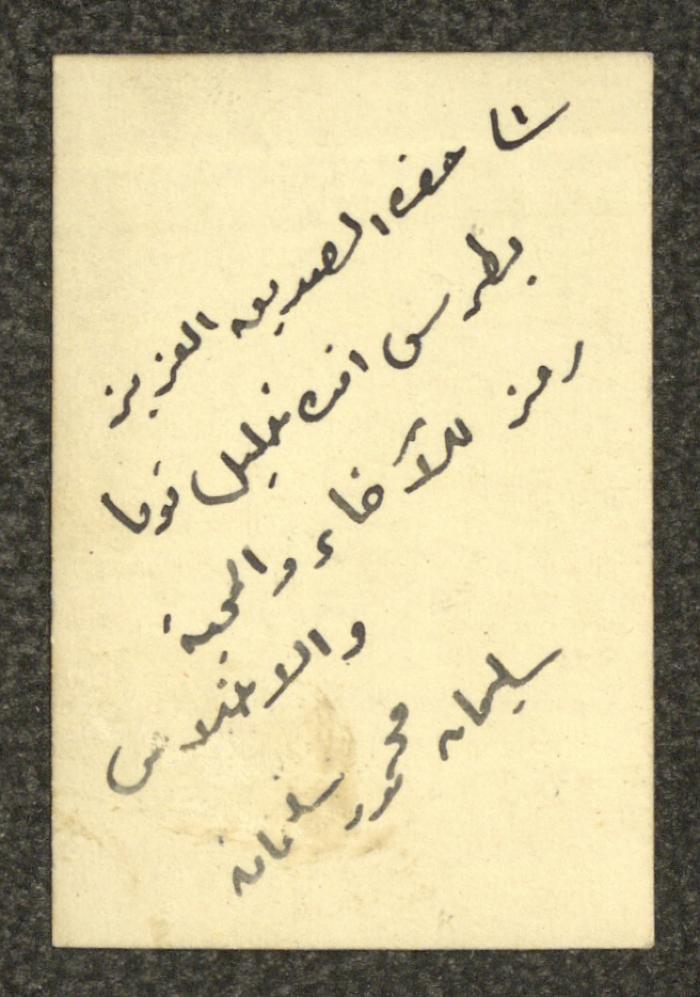 حضرة الصديق العزيز
بطرس افندي خليل توما
رمز للآخاء والمحبة
والاخلاص
سليمان
محمود سليمان